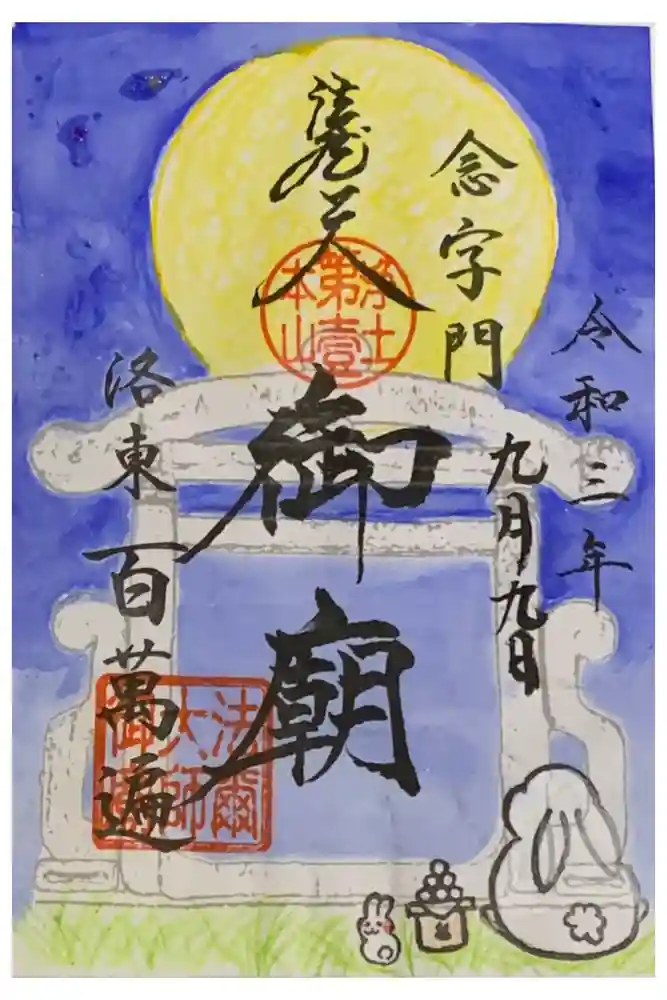 令和三年
九月九日
念字門
法然上人
御廟
洛東 百萬遍
浄土
第壹
本山
法爾
大師
御